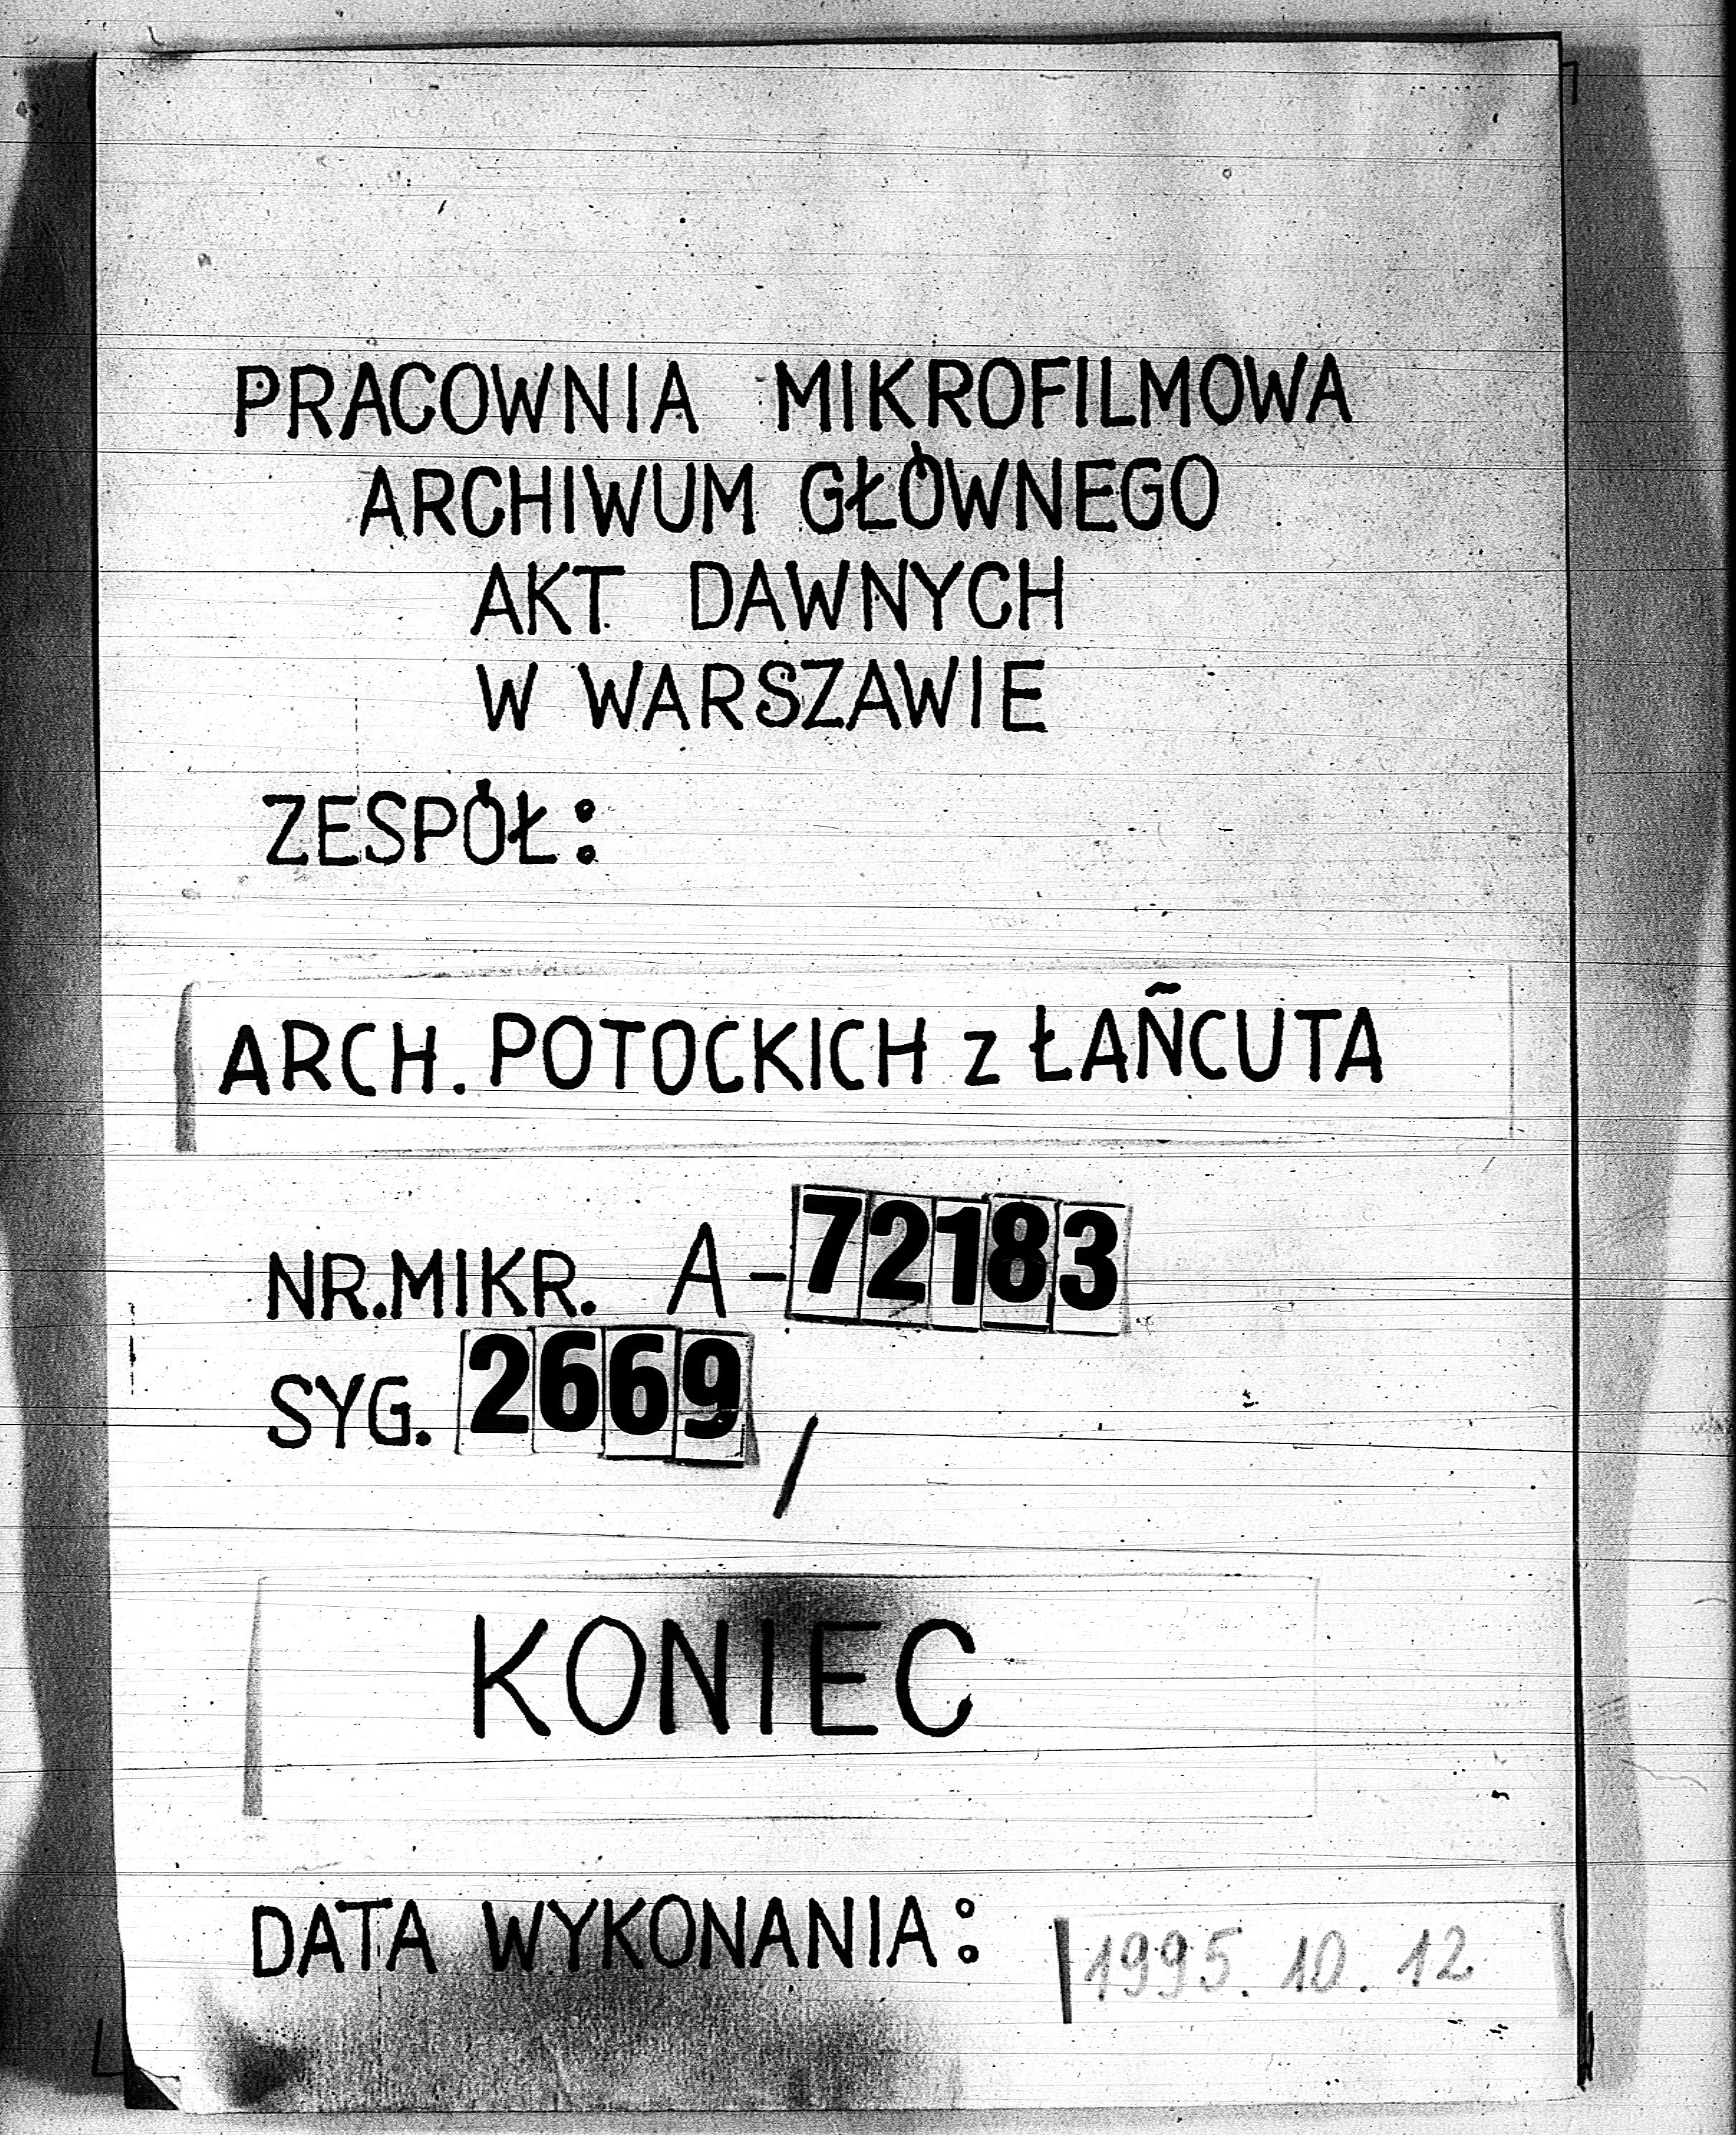 PRACOWNIA MIKROFILMOWA
ARCHIWUM GŁÓWNEGO
AKT DAWNYCH
W WARSZAWIE
ZESPÓŁ:
ARCH. POTOCKICH z ŁAŃCUTA
NR.MIKR. A-72183
SYG. 2669/
KONIEC
DATA WYKONANIA: 1995.10.12